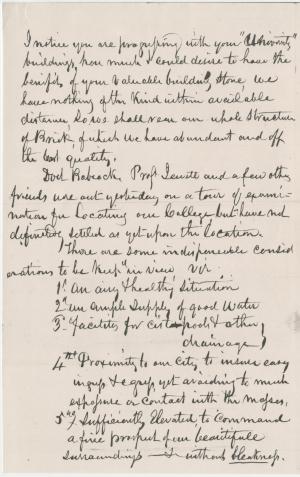 I notice you are progressing with your "University"
building, how much I could desire to have the
benefits of your valuable building stone, we
have nothing of the Kind within available
distance so we shall rear our whole Structure
of Brick of which we have abundant and of
the best quality.
Doct Babcock, Prof. Jewett and a few other
friends were out yesterday on a tour of exami-
nation for Locating our College but have not
definitely settled as yet upon the location.
There are some indispensable consid
erations to be "Kept" in view viz.
1st an airy & healthy situation
2nd an ample Supply of good Water
3d facilities for cesspool & other
drainage
4th Proximity to our City to insure easy
ingress & egress yet avoiding to much
exposure or contact with the masses.
5th Sufficiently Elevated to Command
a fine prospect of our beautiful
surroundings & without bleakness.